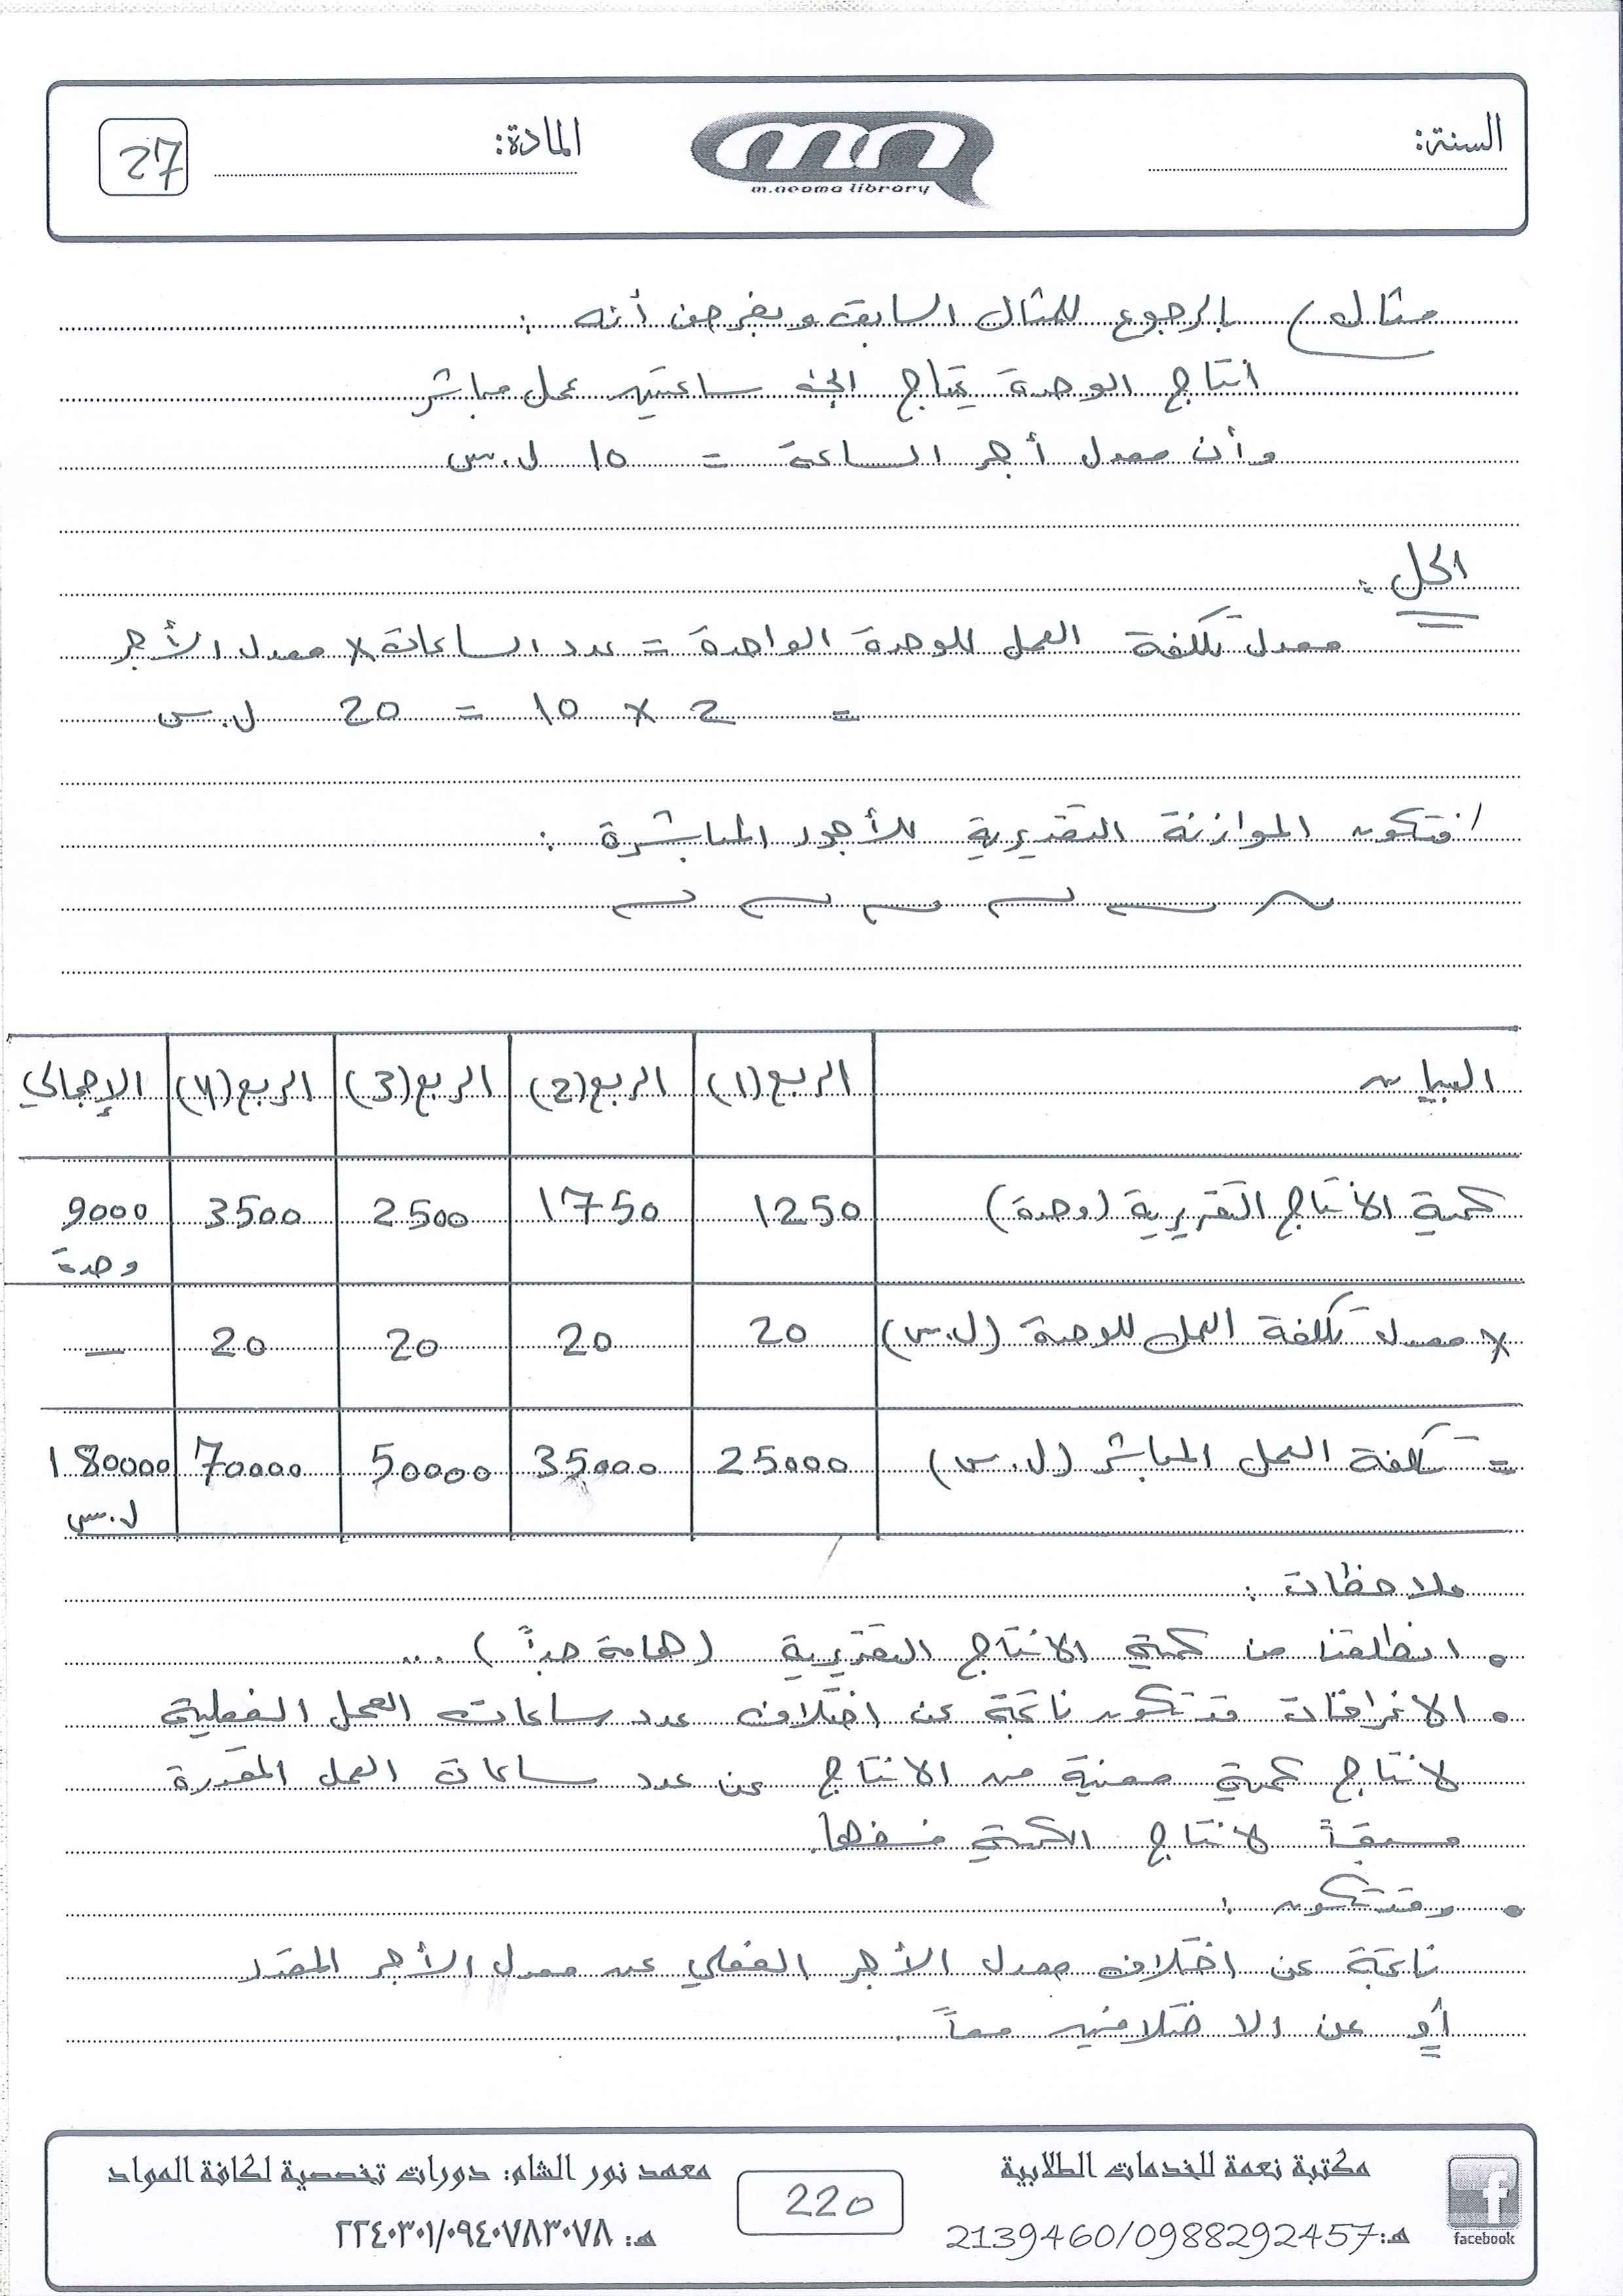 السنة:
mn
m.neama library
المادة:
27
مثال) بالرجوع للمثال السابق وبفرض أنه :
انتاج الوحدة يحتاج الى ساعتين عمل مباشر
وأن معدل أجر الساعة = 10 ل.س
الحل :
معدل تكلفة العمل للوحدة الواحدة = عدد الساعات × معدل الأجر
= 2 × 10 = 20 ل.س
فتكون الموازنة التقديرية للأجور المباشرة :
البيان | الربع (1) | الربع (2) | الربع (3) | الربع (4) | الإجمالي
كمية الانتاج التقديرية (وحدة) | 1250 | 1750 | 2500 | 3500 | 9000 وحدة
× معدل تكلفة العمل للوحدة (ل.س) | 20 | 20 | 20 | 20 | —
= تكلفة العمل المباشر (ل.س) | 25000 | 35000 | 50000 | 70000 | 180000 ل.س
ملاحظات :
• انطلقنا من كمية الانتاج التقديرية (هامة جداً) ...
• الانحرافات قد تكون ناتجة عن اختلاف عدد ساعات العمل الفعلية
لانتاج كمية معينة من الانتاج عن عدد ساعات العمل المقدرة
مسبقاً لانتاج الكمية نفسها.
• وقد تكون :
ناتجة عن اختلاف معدل الأجر الفعلي عن معدل الأجر المقدر
أو عن الاختلافين معاً .
مكتبة نعمة للخدمات الطلابية
هـ: 2139460/0988292457
facebook
220
معهد نور الشام: دورات تخصصية لكافة المواد
هـ: ٢٢٤٠٣٠١/٠٩٤٠٧٨٣٠٧٨